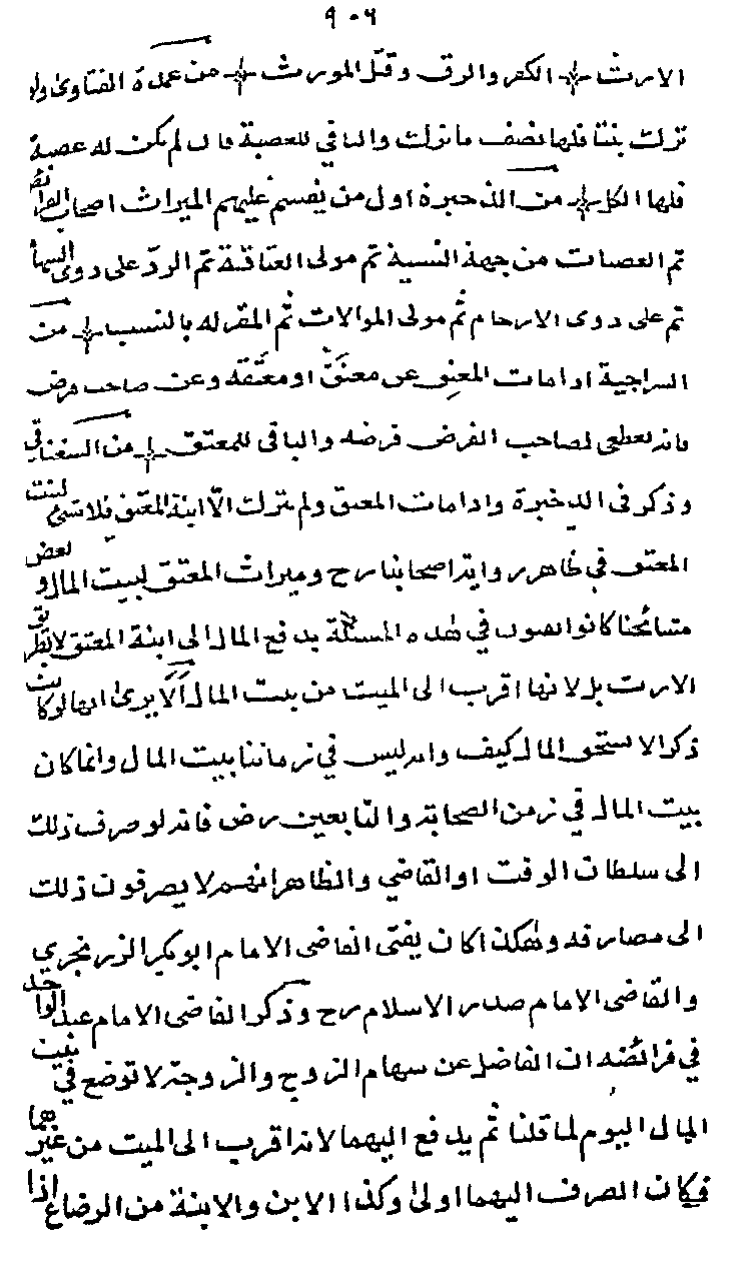 ٩٠٦
الارث الكفر والرق وقتل المورث من عمدة الفتاوى ولو
ترك بنتا فلها نصف ما ترك والباقي للعصبة فان لم يكن له عصبة
فلها الكل من الذخيرة اول من يقسم عليهم الميراث اصحاب الفرائض
ثم العصبات من جهة النسبة ثم مولى العتاقة ثم الرد على ذوى السهام
ثم على ذوى الارحام ثم مولى الموالات ثم المقر له بالنسب من
السراجية اذا مات المعتق عن معتق او معتقه وعن صاحب فرض
فانه يعطى لصاحب الفرض فرضه والباقى للمعتق من السغناقى
وذكر فى الذخيرة واذا مات المعتق ولم يترك الا ابنة المعتق فلا شئ لبنت
المعتق في ظاهر رواية اصحابنا رح وميراث المعتق لبيت المال و بعض
مشائخنا كانوا يفتون في هذه المسئلة يدفع المال الى ابنة المعتق لا بطريق
الارث بل لانها اقرب الى الميت من بيت المال ألا يرى انها لو كانت
ذكرا لاستحق المال كيف وانه ليس في زماننا بيت المال وانما كان
بيت المال في زمن الصحابة والتابعين رض فانه لو صرف ذلك
الى سلطان الوقت او القاضي والظاهر انهم لا يصرفون ذلك
الى مصارفه وهكذا كان يفتى القاضى الامام ابو بكر الزرنجري
والقاضى الامام صدر الاسلام رح وذكر القاضى الامام عبد الواحد
في فرائضه ان الفاضل عن سهام الزوج والزوجة لا توضع في بيت
المال اليوم لما قلنا ثم يدفع اليهما لانهما اقرب الى الميت من غيرهما
فكان الصرف اليهما اولى وكذا الابن والابنة من الرضاع اذا